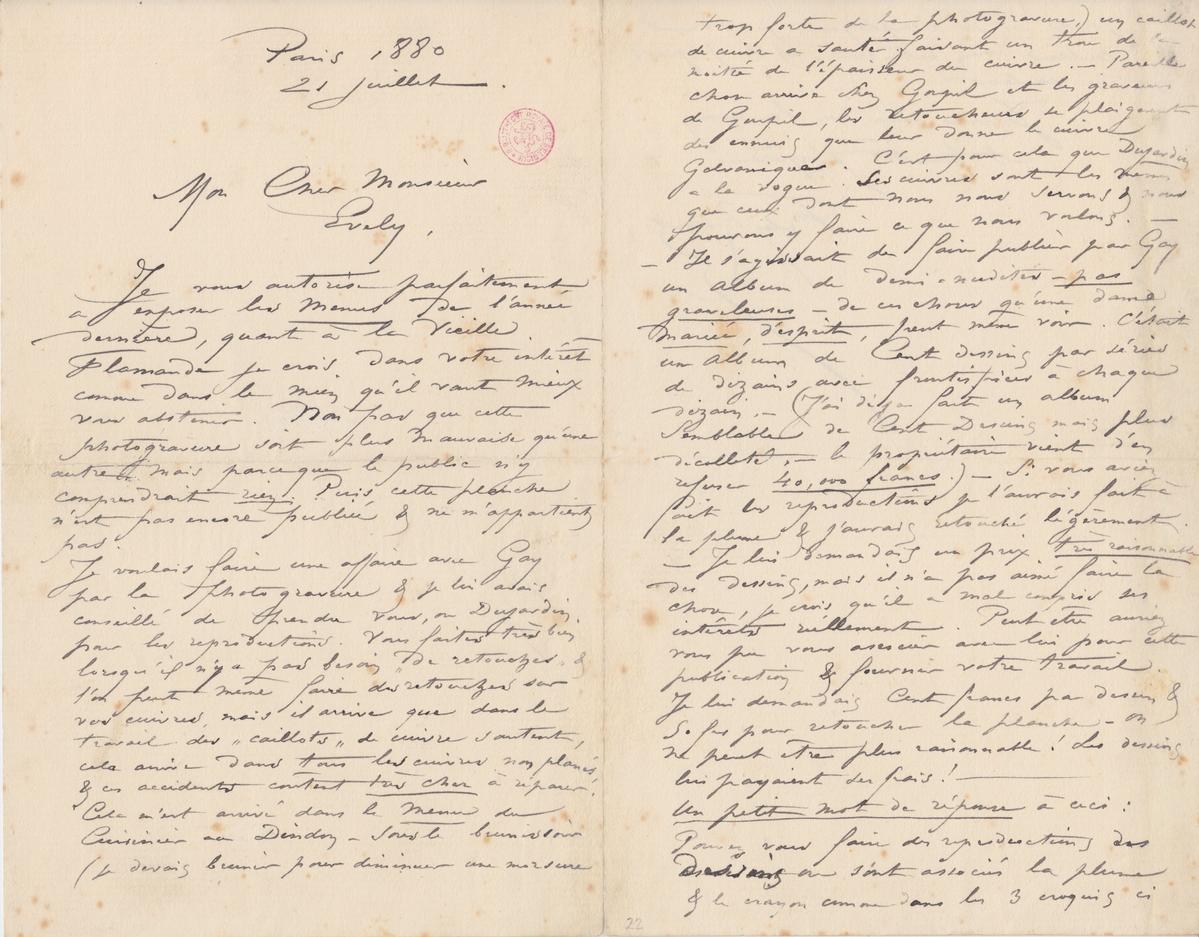 Paris 1880
21 Juillet.
Mon Cher Monsieur
Evely,
Je vous autorise parfaitement
à exposer les Menus de l'année
dernière, quant à la Vieille
Flamande je crois dans votre intérêt
comme dans le mien qu'il vaut mieux
vous abstenir. Non pas que cette
photogravure soit plus mauvaise qu'une
autre mais parceque le public n'y
comprendrait rien. Puis cette planche
n'est pas encore publiée & ne m'appartient
pas.
Je voulais faire une affaire avec Gay
par la photogravure & je lui avais
conseillé de prendre vous, ou Dujardin
pour les reproductions. Vous faites très bien
lorsqu'il n'y a pas besoin "de retouches" &
l'on peut même faire des retouches sur
vos cuivres, mais il arrive que dans le
travail des "caillots" de cuivre sautent,
cela arrive dans tous les cuivres non planés
& ces accidents coutent très cher à réparer!
Cela m'est arrivé dans le Menu du
Cuisinier au Dindon – sous le brunissoir
(je devais brunir pour diminuer une morsure
trop forte de la photogravure,) un caillot
de cuivre a sauté faisant un trou de la
moitié de l'épaisseur du cuivre. – Pareille
chose arrive chez Goupil et les graveurs
de Goupil, les retoucheurs se plaignent
des ennuis que leur donne le cuivre
Galvanique. C'est pour cela que Dujardin
a la vogue. Ses cuivres sont les mêmes
que ceux dont nous nous servons & nous
pouvons y faire ce que nous voulons. –
– Il s'agissait de faire publier par Gay
un album de demi-nudités – pas
graveleuses – de ces choses qu'une dame
mariée, d'esprit, peut même voir. C'était
un Album de Cent dessins par séries
de dizains avec frontispices à chaque
dizain. – (J'ai déjà fait un album
semblable de Cent Dessins mais plus
décolleté, – le propriétaire vient d'en
refuser 40,000 francs.) – Si vous aviez
fait les reproductions je l'aurais fait à
la plume & j'aurais retouché légèrement.
– Je lui demandais un prix très raisonnable
des dessins, mais il n'a pas aimé faire la
chose, je crois qu'il a mal compris ses
intérêts réellement. Peut être auriez
vous pu vous associer avec lui pour cette
publication & fournir votre travail.
Je lui demandais Cent francs par dessin &
50 fcs pour retoucher la planche – on
ne peut etre plus raisonnable! Les dessins
lui payaient ses frais!
Un petit mot de réponse à ceci:
Pouvez vous faire des reproductions des
ou sont associés la plume
& le crayon comme dans les 3 croquis ci
22